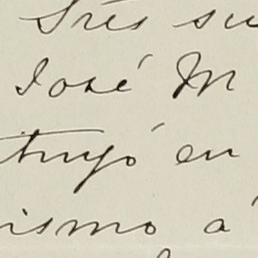 Tres su
José M
tuyó en
ismo á